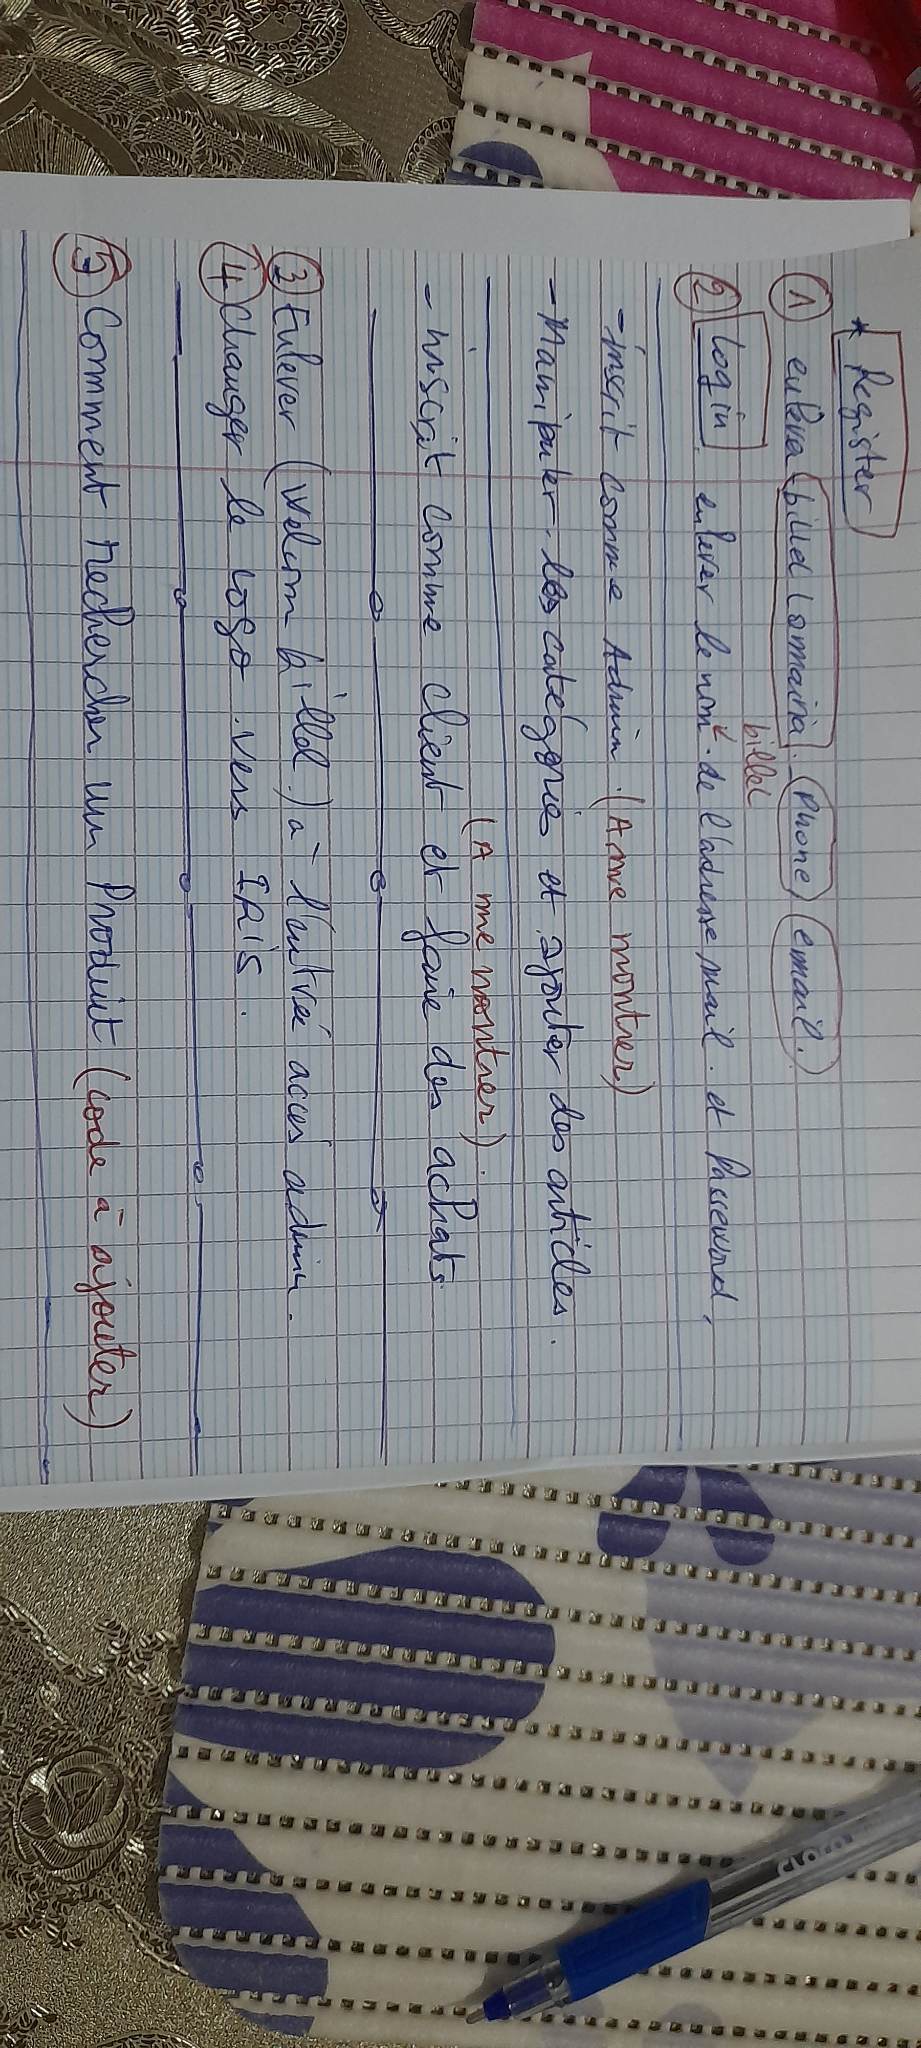 * Register
① enleva billel Lomairia. (Phone) (email.)
billel
② Login. enlever le nom. de l'adresse mail. et Password,
- inscrit comme Admin. (A me montrer)
- Manipuler les catégories et ajouter des articles.
(A me montrer).
- inscrit comme client et faire des achats.
③ Enlever (Welcom billel.) à l'entrée acces admin.
④ changer le logo. vers IRIS.
⑤ Comment rechercher un Produit (code à ajouter)
CLARO